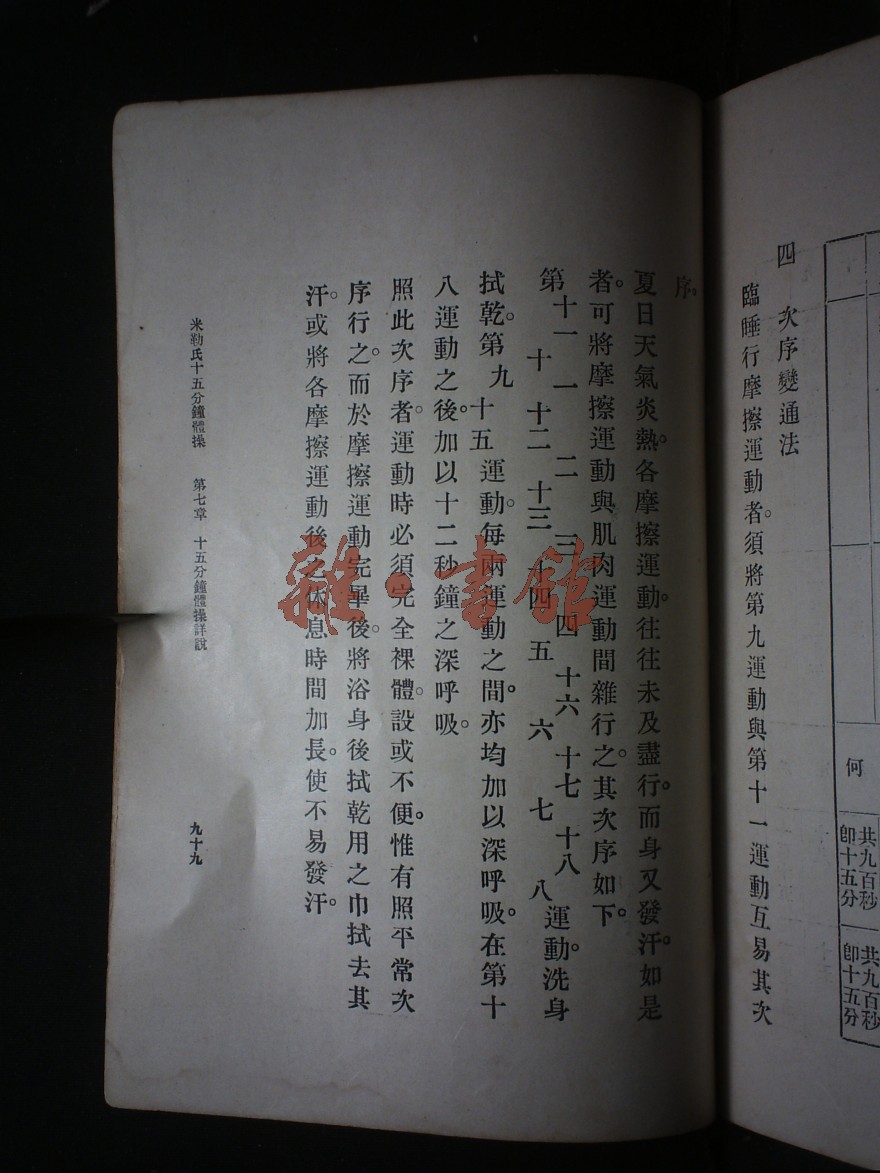 共九百秒
即十五分
何
共九百秒
即十五分
四　次序變通法
臨睡行摩擦運動者。須將第九運動與第十一運動互易其次
序。
夏日天氣炎熱。各摩擦運動。往往未及盡行。而身又發汗。如是
者。可將摩擦運動與肌肉運動間雜行之。其次序如下。
第十一 十 一 十二 二 十三 三 十四 四 五 十六 六 十七 七 十八 八運動。洗身
拭乾。第九 十五 運動。每兩運動之間。亦均加以深呼吸。在第十
八運動之後。加以十二秒鐘之深呼吸。
照此次序者。運動時必須完全裸體。設或不便。惟有照平常次
序行之。而於摩擦運動完畢後。將浴身後拭乾用之巾拭去其
汗。或將各摩擦運動後之休息時間加長。使不易發汗。
米勒氏十五分鐘體操　第七章　十五分鐘體操詳說　九十九
雜·書館